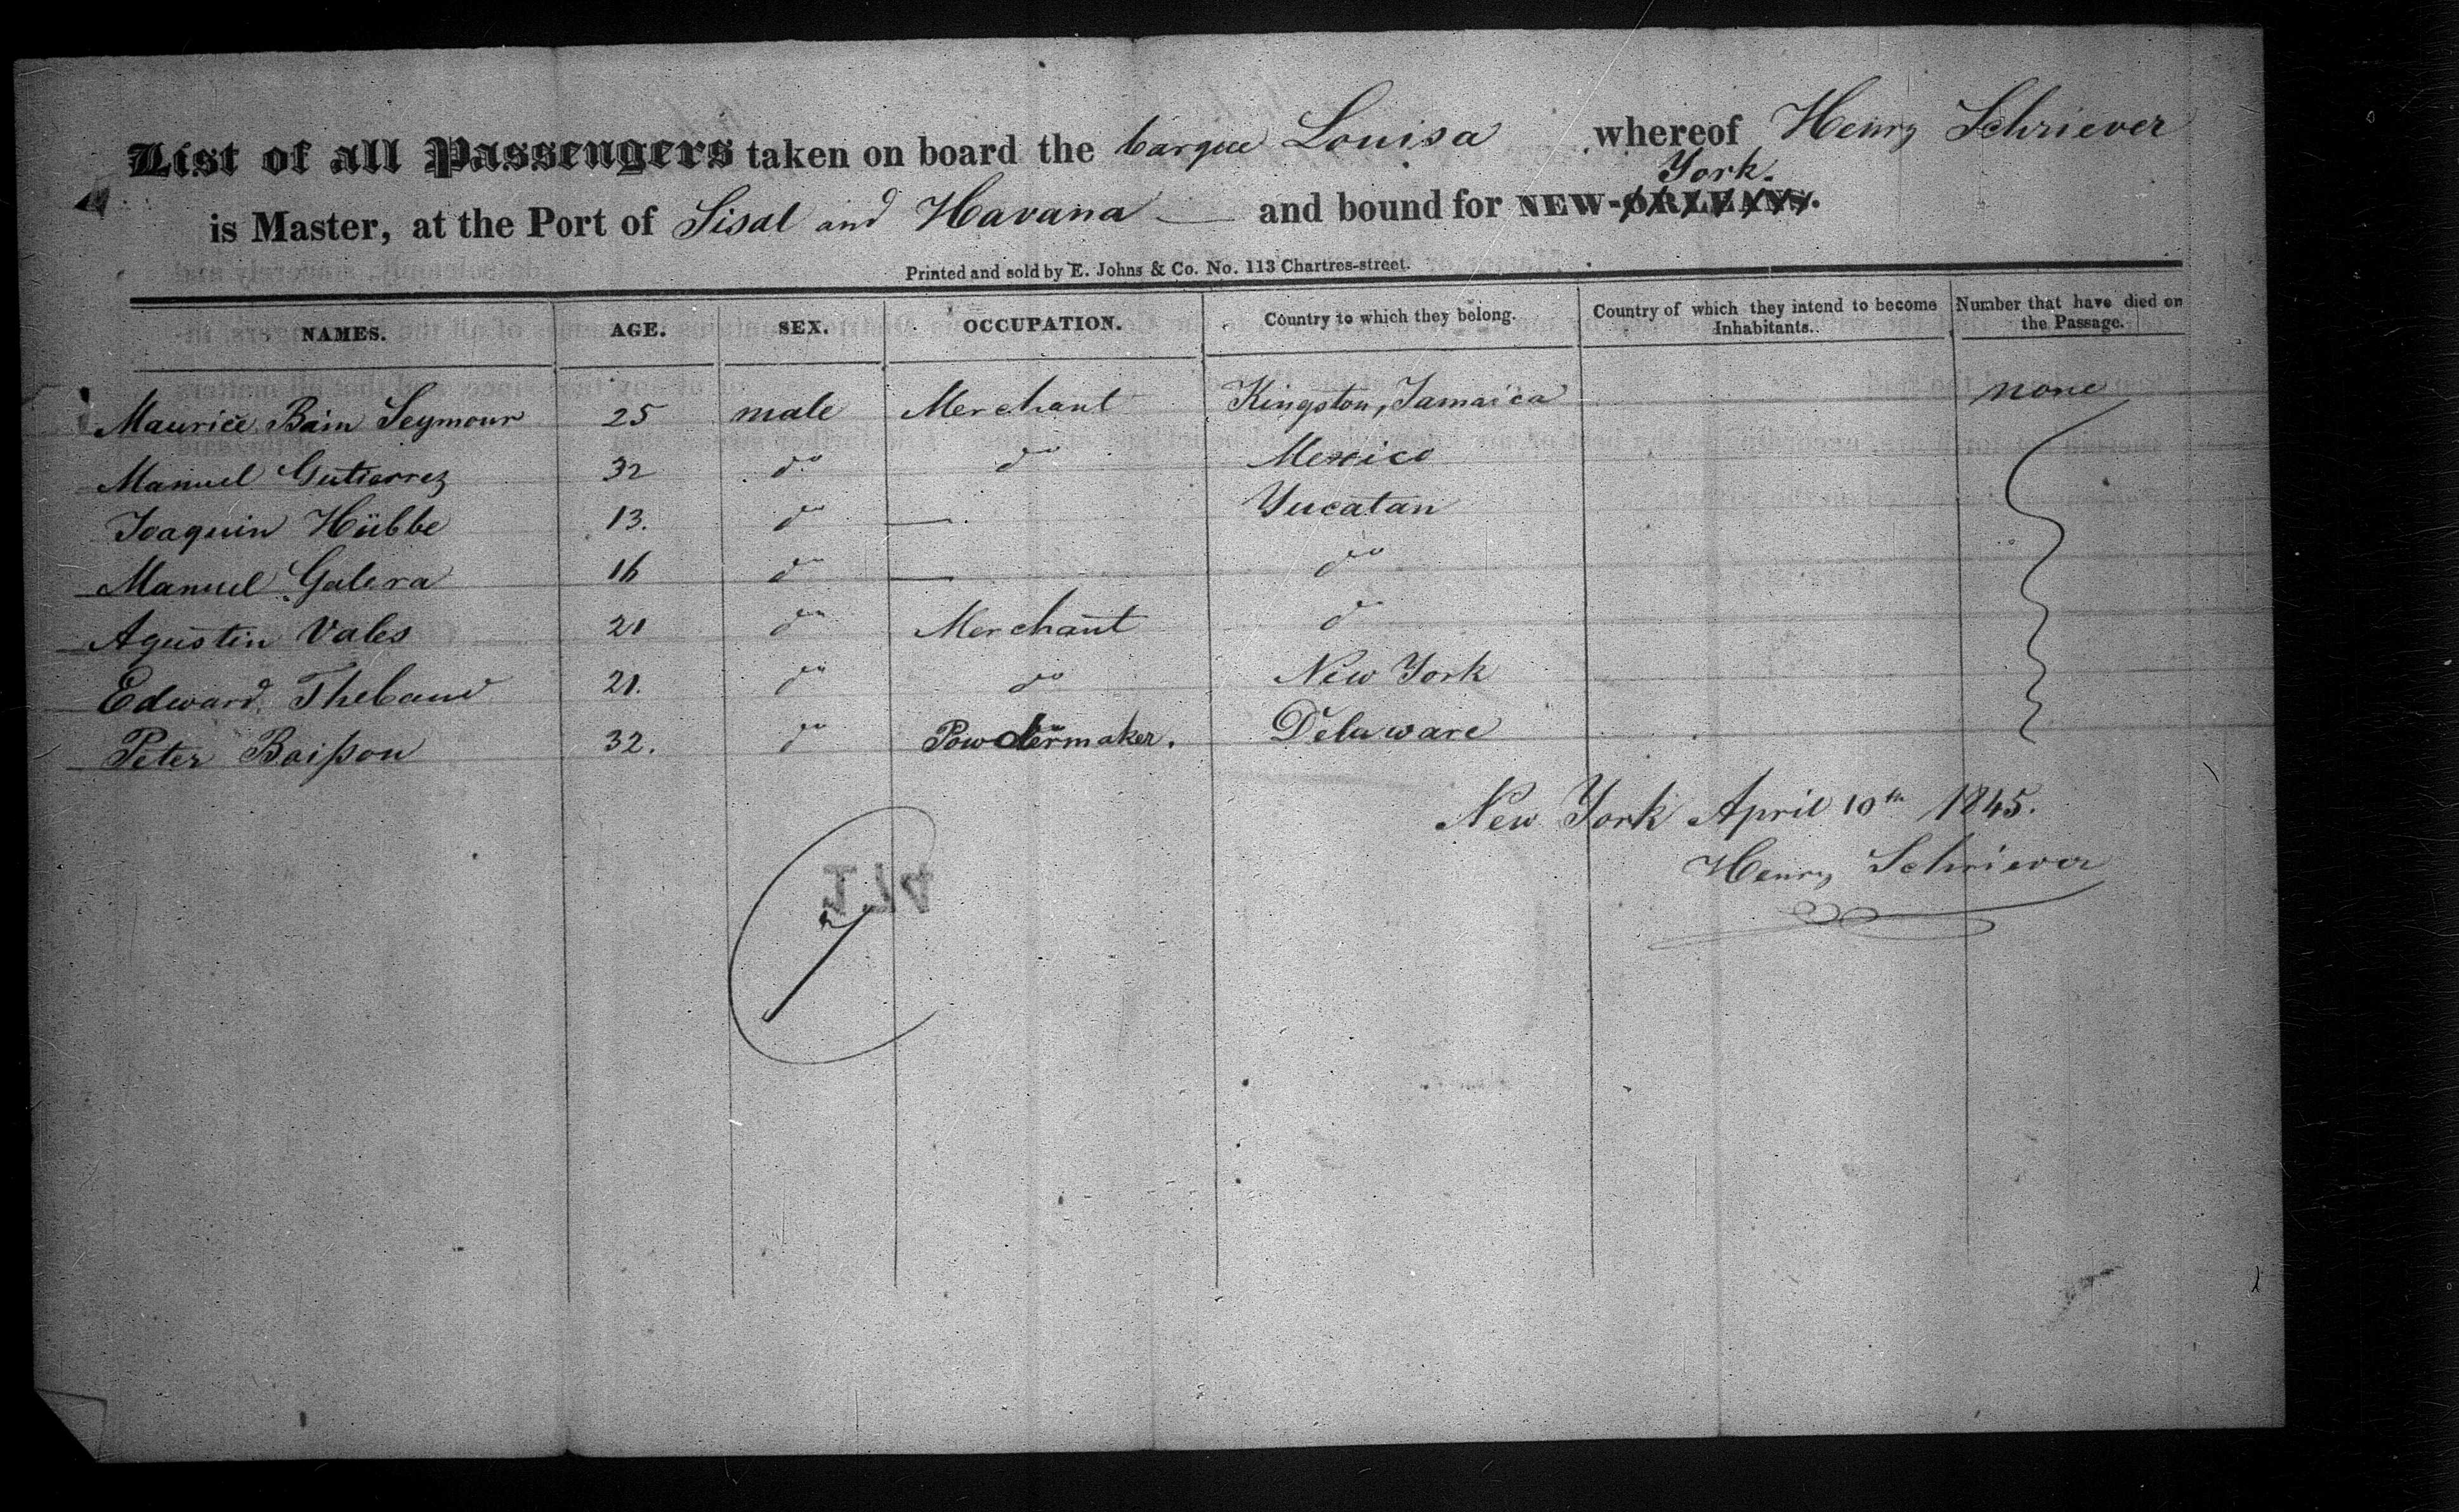 List of all Passengers taken on board the barque Louisa whereof Henry Schriever
York.
is Master, at the Port of Sisal and Havana — and bound for NEW-ORLEANS.
Printed and sold by E. Johns & Co. No. 113 Chartres-street.
NAMES. AGE. SEX. OCCUPATION. Country to which they belong. Country of which they intend to become Inhabitants. Number that have died on the Passage.
Maurice Bain Seymour 25 male Merchant Kingston, Jamaica none
Manuel Gutierrez 32 do do Mexico
Joaquin Hübbe 13. do — Yucatan
Manuel Galera 16 do — do
Agustin Vales 21 do Merchant do
Edward Thebaud 21. do do New York
Peter Boisson 32. do Powdermaker. Delaware
New York April 10th 1845.
Henry Schriever
174
7